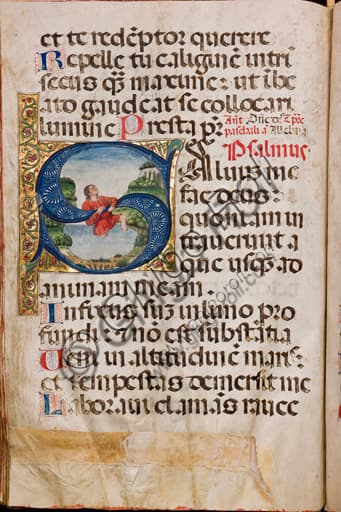 et te redẽptor querere
Repelle tu caliginẽ intrĩ
secus q̃ȝ maxime: ut ĩ be
ato gaudeat se collocari
lumine Presta pr̃
Añt
Psalmus
Saluũ me
fac deus:
quoniam in
traverunt a
que usq; ad
animam meam.
Infixus suȝ in limo pro
fundi: ⁊ nõ est substãtia
Ueni in altitudinẽ maris:
et tempestas demersit me
Laboraui clamãs rauce